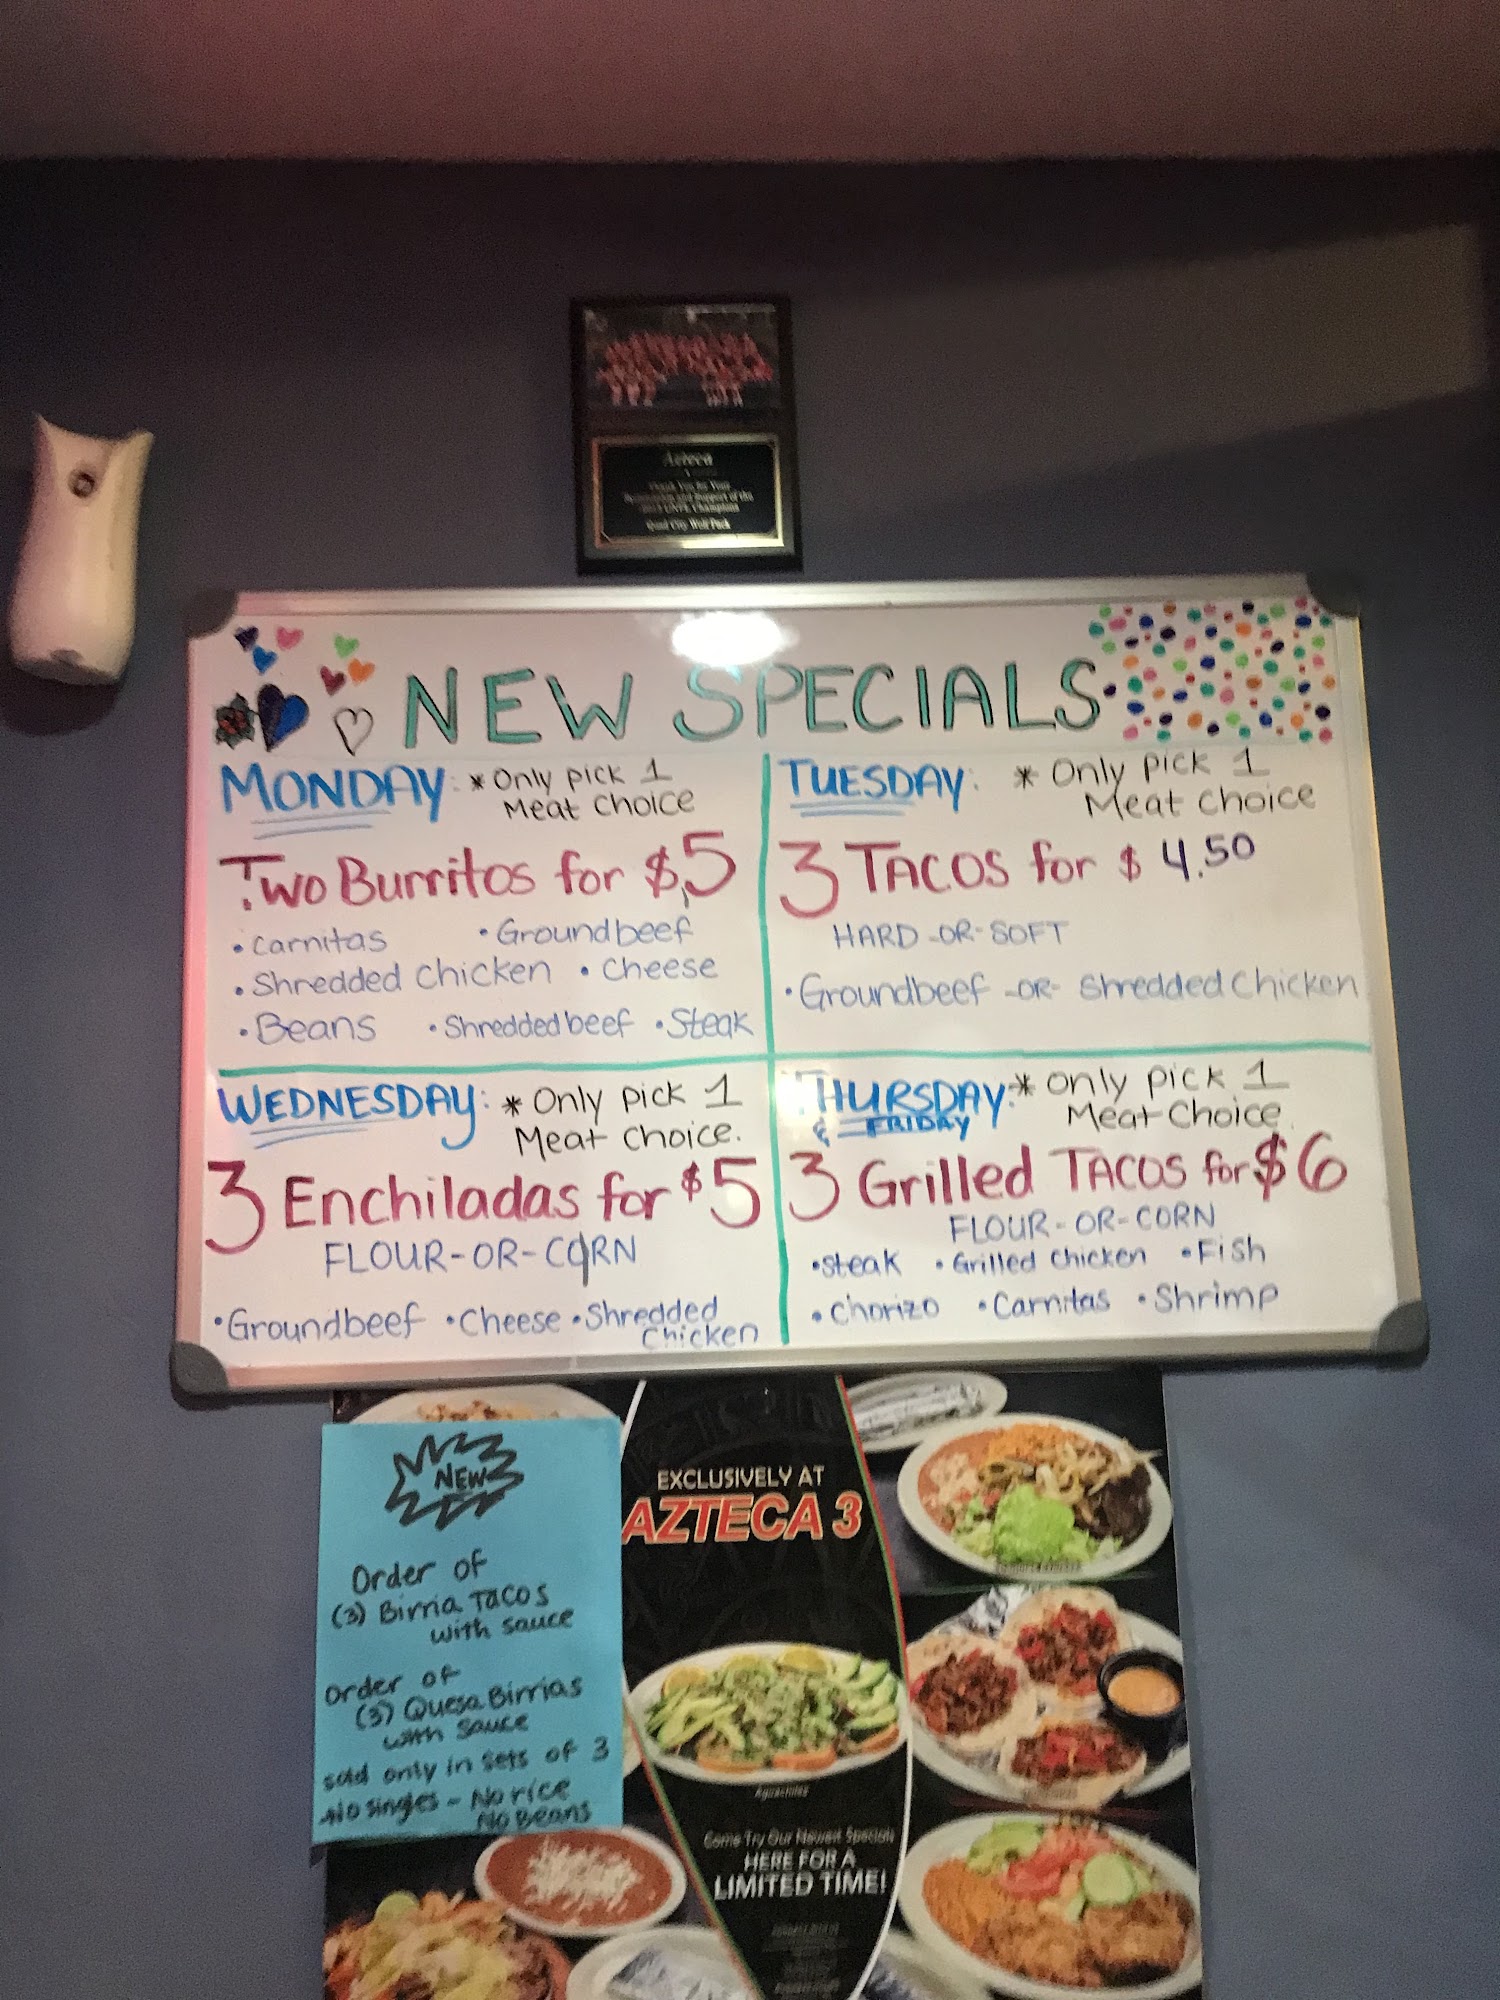 Azteca
Thank You for Your
Sponsorship and Support of the
Champions
Quad City Wolf Pack
NEW SPECIALS
MONDAY: * Only pick 1
Meat Choice
Two Burritos for $5
• Carnitas • Groundbeef
• Shredded Chicken • Cheese
• Beans • Shredded beef • Steak
TUESDAY: * Only pick 1
Meat Choice
3 TACOS for $ 4.50
HARD -OR- SOFT
• Groundbeef -OR- Shredded Chicken
WEDNESDAY: * Only pick 1
Meat Choice.
3 Enchiladas for $5
FLOUR-OR-CORN
• Groundbeef • Cheese • Shredded
Chicken
THURSDAY: * Only pick 1
& FRIDAY Meat Choice.
3 Grilled TACOS for $6
FLOUR-OR-CORN
• Steak • Grilled Chicken • Fish
• Chorizo • Carnitas • Shrimp
NEW
Order of
(3) Birria TACOS
with sauce
Order of
(3) Quesa Birrias
with sauce
sold only in sets of 3
No singles - No rice
No Beans
EXCLUSIVELY AT
AZTECA 3
Aguachiles
Come Try Our Newest Specials
HERE FOR A
LIMITED TIME!